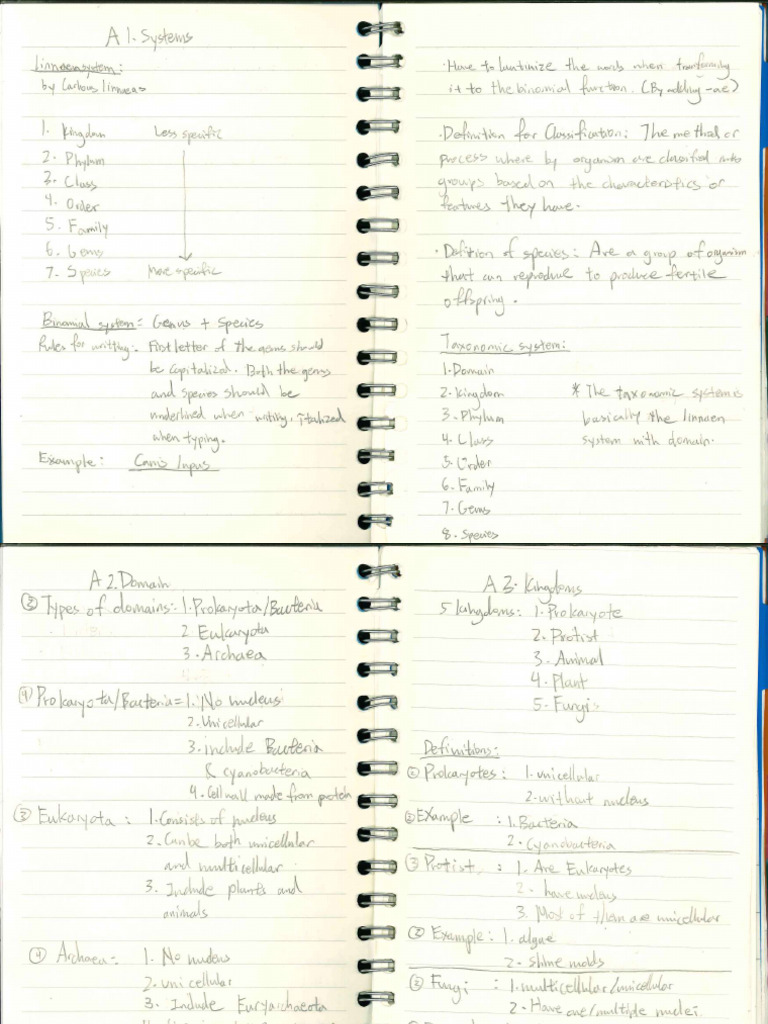 A 1. Systems
Linnaean system:
by Carlous linnaeas
1. Kingdom Less specific
2. Phylum
3. Class
4. Order
5. Family
6. Genus
7. Species More specific
Binomial system = Genus + Species
Rules for writting: First letter of the genus should
be capitalized. Both the genus
and species should be
underlined when writing, italized
when typing.
Example: Canis lupus
· Have to the words when transforming
it to the binomial function. (By adding -ae)
· Definition for Classification: The method or
process where by organism are classified into
groups based on the characteristics or
features they have.
· Defition of species: Are a group of organism
that can reproduce to produce fertile
offspring.
Taxonomic system:
1. Domain
2. Kingdom * The taxonomic system is
3. Phylum basically the linnaen
4. Class system with domain.
5. Order
6. Family
7. Genus
8. Species
A 2. Domain
③ Types of domains: 1. Prokaryota/Bacteria
2 Eukaryota
3. Archaea
④ Prokaryota/Bacteria = 1. No nucleus
2. Unicellular
3. include Bacteria
& cyanobacteria
4. Cell wall made from protein
③ Eukaryota : 1. Consists of nucleus
2. Can be both unicellular
and multicellular
3. Include plants and
animals
④ Archaea = 1. No nucleus
2. unicellular
3. Include Euryarchaeota
A 3. Kingdoms
5 kingdoms: 1. Prokaryote
2. Protist
3. Animal
4. Plant
5. Fungi
Definitions:
② Prokaryotes : 1. unicellular
2. without nucleus
② Example : 1. Bacteria
2. Cyanobacteria
③ Protist : 1. Are Eukaryotes
2. have nucleus
3. Most of them are unicellular
② Example: 1. algae
2. slime molds
② Fungi : 1. multicellular/unicellular
2. Have one/multiple nuclei.